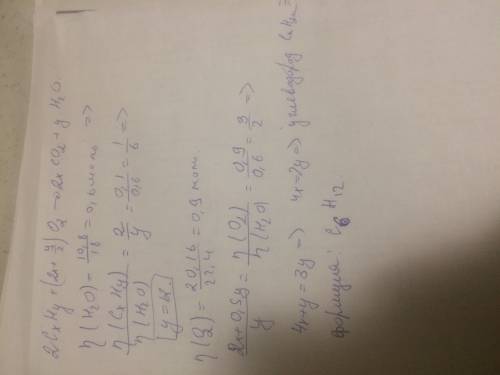 2CxHy + (2x + y/2) O2 → 2x CO2 + y H2O
η (H2O) = 10,8/18 = 0,6 моль =>
η (CxHy) / η (H2O) = 2/y = 0,1/0,6 = 1/6 =>
y = 12.
η (O2) = 20,16/22,4 = 0,9 моль.
2x + 0,5y / y = η (O2) / η (H2O) = 0,9/0,6 = 3/2 =>
4x + y = 3y => 4x = 2y => углеводород CnH2n =>
формула: C6 H12